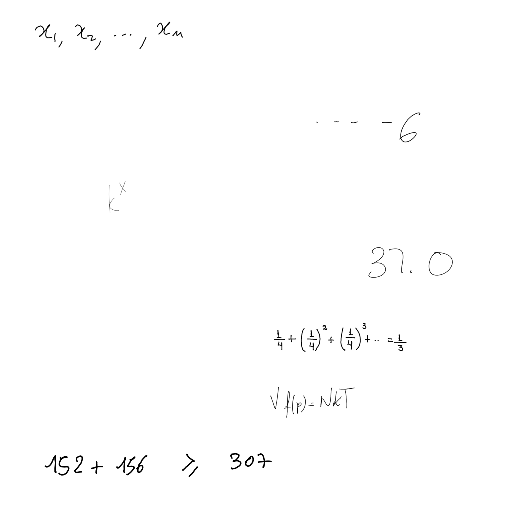 x₁, x₂, ..., xₙ
.----6
k^x
37.0
1/4 + (1/4)² + (1/4)³ + ... = 1/3
V f(p) = NkT
152 + 156 ≥ 307